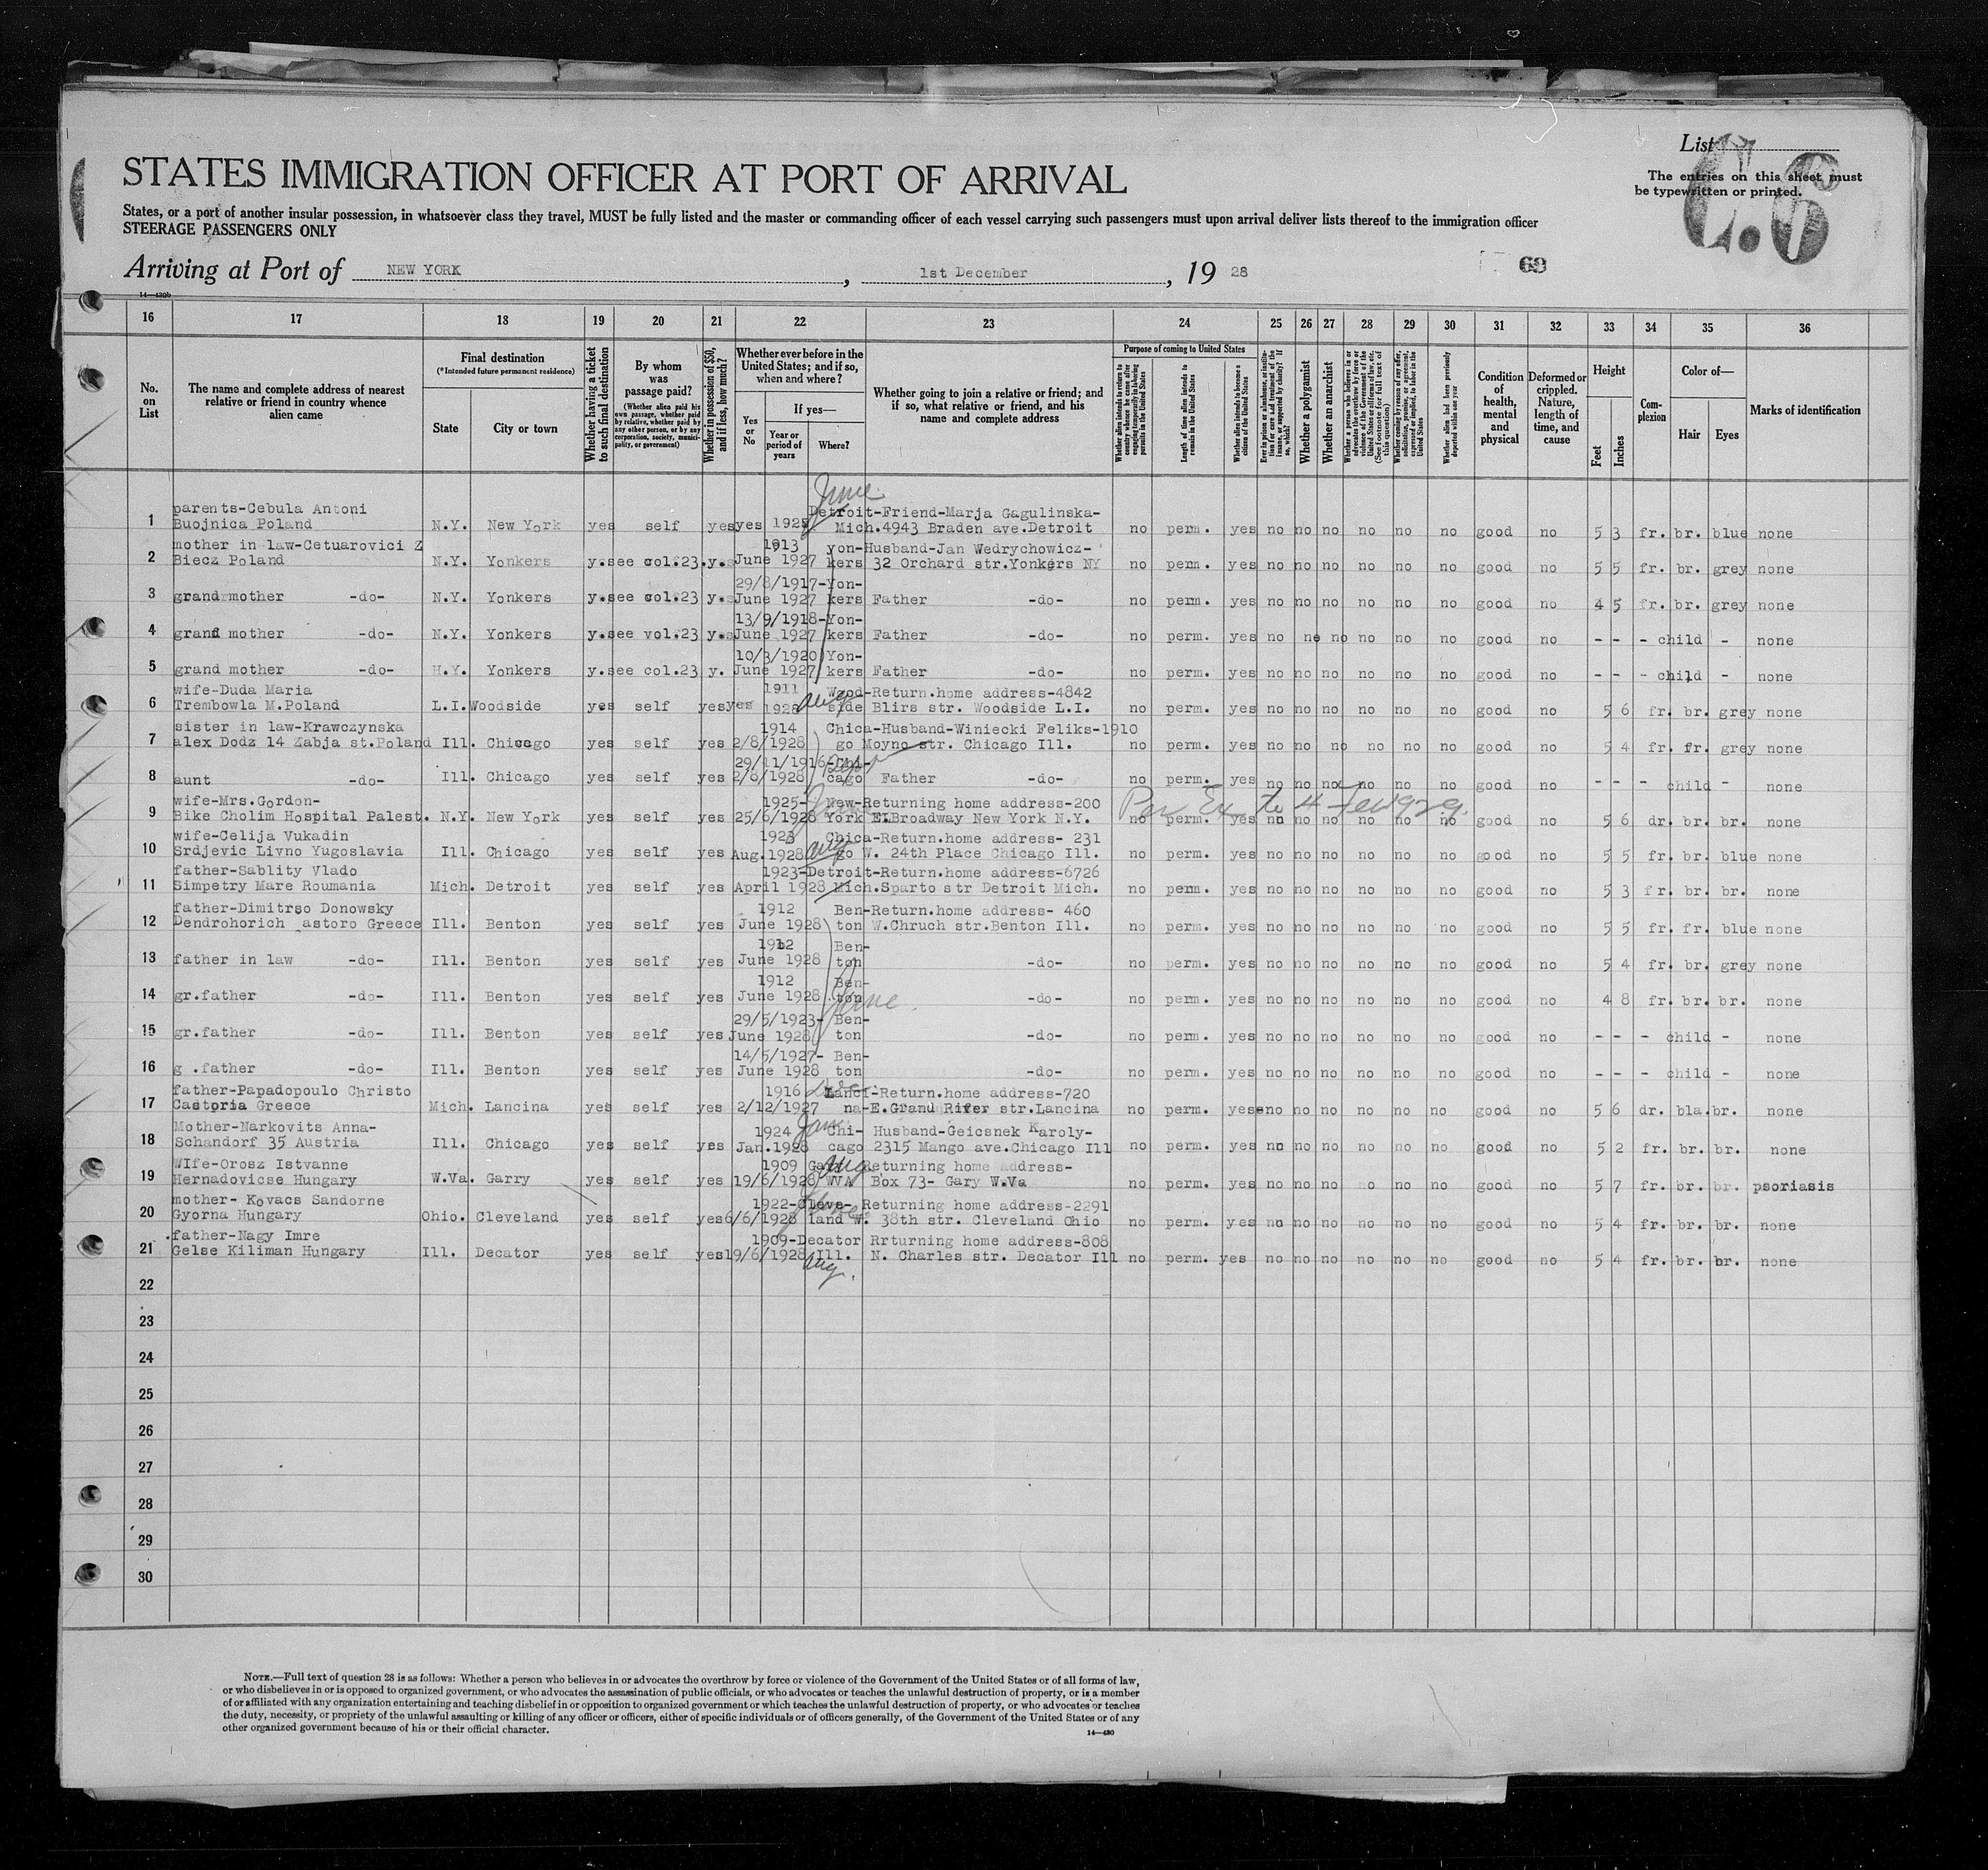 List
The entries on this sheet must
be typewritten or printed.
C.6
STATES IMMIGRATION OFFICER AT PORT OF ARRIVAL
States, or a port of another insular possession, in whatsoever class they travel, MUST be fully listed and the master or commanding officer of each vessel carrying such passengers must upon arrival deliver lists thereof to the immigration officer
STEERAGE PASSENGERS ONLY
Arriving at Port of NEW YORK, 1st December, 19 28
69
14—430b
16 17 18 19 20 21 22 23 24 25 26 27 28 29 30 31 32 33 34 35 36
No. on List
The name and complete address of nearest relative or friend in country whence alien came
Final destination
(*Intended future permanent residence)
State
City or town
Whether having a ticket to such final destination
By whom was passage paid?
(Whether alien paid his own passage, whether paid by relative, whether paid by any other person, or by any corporation, society, municipality, or government)
Whether in possession of $50, and if less, how much?
Whether ever before in the United States; and if so, when and where?
Yes or No
If yes—
Year or period of years
Where?
Whether going to join a relative or friend; and if so, what relative or friend, and his name and complete address
Purpose of coming to United States
Whether alien intends to return to country whence he came after engaging temporarily in laboring pursuits in the United States
Length of time alien intends to remain in the United States
Whether alien intends to become a citizen of the United States
Ever in prison or almshouse, or institution for care and treatment of the insane, or supported by charity? If so, which?
Whether a polygamist
Whether an anarchist
Whether a person who believes in or advocates the overthrow by force or violence of the Government of the United States or all forms of law, etc. (See footnote for full text of this question)
Whether coming by reason of any offer, solicitation, promise, or agreement, expressed or implied, to labor in the United States
Whether alien had been previously deported within one year
Condition of health, mental and physical
Deformed or crippled. Nature, length of time, and cause
Height
Feet
Inches
Complexion
Color of—
Hair
Eyes
Marks of identification
June
parents-Cebula Antoni Detroit-Friend-Marja Gagulinska-
1 Buojnica Poland N.Y. New York yes self yes yes 1925 Mich.4943 Braden ave.Detroit no perm. yes no no no no no no good no 5 3 fr. br. blue none
mother in law-Cetuarovici Z 1913 yon-Husband-Jan Wedrychowicz-
2 Biecz Poland N.Y. Yonkers y.see col.23.y.s June 1927 kers 32 Orchard str.Yonkers NY no perm. yes no no no no no no good no 5 5 fr. br. grey none
29/8/1917-Yon-
3 grandmother -do- N.Y. Yonkers y.see col.23 y.s June 1927 kers Father -do- no perm. yes no no no no no no good no 4 5 fr. br. grey none
13/9/1918-Yon-
4 grand mother -do- N.Y. Yonkers y.see vol.23 y.s June 1927 kers Father -do- no perm. yes no no no no no no good no - - - child - none
10/3/1920 Yon-
5 grand mother -do- H.Y. Yonkers y.see col.23 y. June 1927 kers Father -do- no perm. yes no no no no no no good no - - - child - none
wife-Duda Maria 1911 Wood-Return.home address-4842
6 Trembowla M.Poland L.I.Woodside yes self yes yes 1928 Aug side Blirs str. Woodside L.I. no perm. yes no no no no no no good no 5 6 fr. br. grey none
sister in law-Krawczynska 1914 Chica-Husband-Winiecki Feliks-1910
7 alex Dodz 14 Zabja st.Poland Ill. Chicago yes self yes 2/8/1928 go Moyno str. Chicago Ill. no perm. yes no no no no no no good no 5 4 fr. fr. grey none
29/11/1916-Chi-
8 aunt -do- Ill. Chicago yes self yes 2/8/1928 cago Father -do- no perm. yes no no no no no no good no - - - child - none
wife-Mrs.Gordon- 1925- New-Returning home address-200
9 Bike Cholim Hospital Palest. N.Y. New York yes self yes 25/6/1928 York E.Broadway New York N.Y. no perm. yes no no no no no no good no 5 6 dr. br. br. none
wife-Celija Vukadin 1923 Chica-Return.home address- 231
10 Srdjevic Livno Yugoslavia Ill. Chicago yes self yes Aug.1928 Aug go W. 24th Place Chicago Ill. no perm. yes no no no no no no good no 5 5 fr. br. blue none
father-Sablity Vlado 1923-Detroit-Return.home address-6726
11 Simpetry Mare Roumania Mich. Detroit yes self yes April 1928 Mich.Sparto str Detroit Mich. no perm. yes no no no no no no good no 5 3 fr. br. br. none
father-Dimitrso Donowsky 1912 Ben-Return.home address- 460
12 Dendrohorich astoro Greece Ill. Benton yes self yes June 1928 ton W.Chruch str.Benton Ill. no perm. yes no no no no no no good no 5 5 fr. fr. blue none
1912 Ben-
13 father in law -do- Ill. Benton yes self yes June 1928 ton -do- no perm. yes no no no no no no good no 5 4 fr. br. grey none
1912 Ben-
14 gr.father -do- Ill. Benton yes self yes June 1928 ton June -do- no perm. yes no no no no no no good no 4 8 fr. br. br. none
29/5/1923- Ben-
15 gr.father -do- Ill. Benton yes self yes June 1928 ton -do- no perm. yes no no no no no no good no - - - child - none
14/5/1927- Ben-
16 g .father -do- Ill. Benton yes self yes June 1928 ton -do- no perm. yes no no no no no no good no - - - child - none
father-Papadopoulo Christo 1916 Lanci-Return.home address-720
17 Castoria Greece Mich. Lancina yes self yes 2/12/1927 na-E.Grand River str.Lancina no perm. yes no no no no no no good no 5 6 dr. bla.br. none
Mother-Narkovits Anna- 1924 Jan Chi- Husband-Geicsnek Karoly-
18 Schandorf 35 Austria Ill. Chicago yes self yes Jan.1928 cago 2315 Mango ave.Chicago Ill no perm. yes no no no no no no good no 5 2 fr. br. br. none
WIfe-Orosz Istvanne 1909 Aug Returning home address-
19 Hernadovicse Hungary W.Va. Garry yes self yes 19/6/1928 WVA Box 73- Gary W.Va no perm. yes no no no no no no good no 5 7 fr. br. br. psoriasis
mother- Kovacs Sandorne 1922-Cleve- Returning home address-2291
20 Gyorna Hungary Ohio. Cleveland yes self yes 6/6/1928 land W. 38th str. Cleveland Ohio no perm. yes no no no no no no good no 5 4 fr. br. br. none
father-Nagy Imre 1909-Decator Rrturning home address-808
21 Gelse Kiliman Hungary Ill. Decator yes self yes 19/6/1928 Ill. N. Charles str. Decator Ill no perm. yes no no no no no no good no 5 4 fr. br. br. none
Aug.
22
23
24
25
26
27
28
29
30
NOTE.—Full text of question 28 is as follows: Whether a person who believes in or advocates the overthrow by force or violence of the Government of the United States or of all forms of law,
or who disbelieves in or is opposed to organized government, or who advocates the assassination of public officials, or who advocates or teaches the unlawful destruction of property, or is a member
of or affiliated with any organization entertaining and teaching disbelief in or opposition to organized government or which teaches the unlawful destruction of property, or who advocates or teaches
the duty, necessity, or propriety of the unlawful assaulting or killing of any officer or officers, either of specific individuals or of officers generally, of the Government of the United States or of any
other organized government because of his or their official character.
14—430